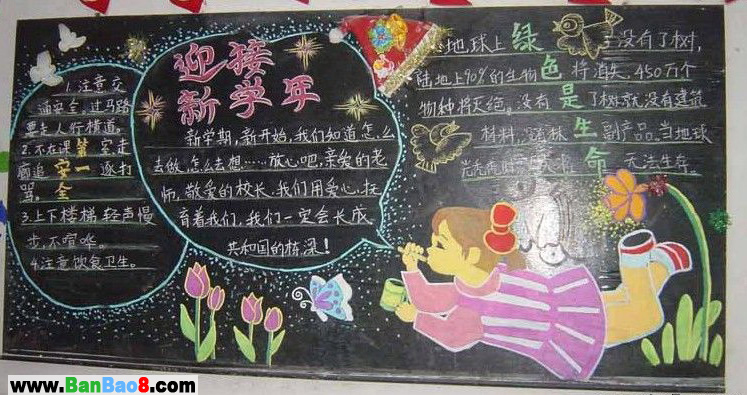 1.注意交
通安全,过马路
要走人行横道。
2.不在课 室走
廊追 逐打
骂。
第
安一
全
3.上下楼梯,轻声慢
步,不喧哗。
4.注意饮食卫生。
迎接
新学年
新学期,新开始,我们知道怎么
去做,怎么去想……放心吧,亲爱的老
师,敬爱的校长,我们用爱心,抚
育着我们,我们一定会长成
共和国的栋梁!
绿色是生命
地球上 没有了树,
陆地上90%的生物 将消失,450万个
物种将灭绝。没有 了树就没有建筑
材料, 林 副产品,当地球
无法生存。
www.BanBao8.com